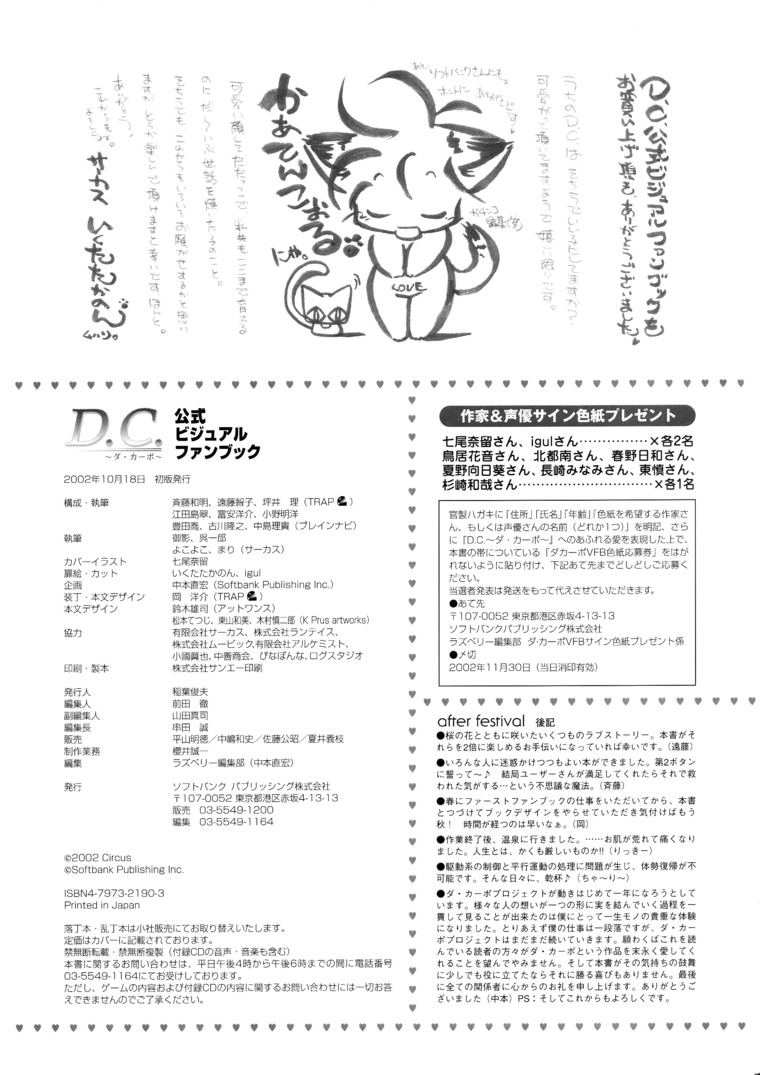 D.C.公式ビジュアルファンブックを
お買い上げ頂き ありがとうございました
うちのD.C.は そちらでいい子にしてますか?
可愛がって頂いてますなので 嬉しい限りです。
あと ソフトバンクさんにも。
ホントに ありがとうです
かあてんこおる
にゃ。
LOVE
ますが どうか楽しんで頂けますと幸いです ほんと。
ありがとう、
これからもね。
サーカス いくたたかのん。
D.C.
~ダ・カーポ~
公式
ビジュアル
ファンブック
2002年10月18日 初版発行
構成・執筆 斉藤和明、遠藤智子、坪井 理(TRAP)
江田島翠、富安洋介、小野明洋
豊田喬、古川隆之、中島理貴(ブレインナビ)
執筆 御影、呉一郎
よこよこ、まり(サーカス)
カバーイラスト 七尾奈留
扉絵・カット いくたたかのん、igul
企画 中本直宏(Softbank Publishing Inc.)
装丁・本文デザイン 岡 洋介(TRAP)
本文デザイン 鈴木雄司(アットワンス)
松本てつじ、東山和美、木村慎二郎(K Prus artworks)
協力 有限会社サーカス、株式会社ランティス、
株式会社ムービック、有限会社アルケミスト、
小國眞也、中善商会、ぴなぽんな、ログスタジオ
印刷・製本 株式会社サンエー印刷
発行人 稲葉俊夫
編集人 前田 徹
副編集人 山田真司
編集長 串田 誠
販売 平山明徳/中嶋和史/佐藤公昭/夏井義枝
制作業務 櫻井誠一
編集 ラズベリー編集部(中本直宏)
発行 ソフトバンク パブリッシング株式会社
〒107-0052 東京都港区赤坂4-13-13
販売 03-5549-1200
編集 03-5549-1164
©2002 Circus
©Softbank Publishing Inc.
ISBN4-7973-2190-3
Printed in Japan
落丁本・乱丁本は小社販売にてお取り替えいたします。
定価はカバーに記載されております。
禁無断転載・禁無断複製(付録CDの音声・音楽も含む)
本書に関するお問い合わせは、平日午後4時から午後6時までの間に電話番号
03-5549-1164にてお受けします。
ただし、ゲームの内容および付録CDの内容に関するお問い合わせには一切お答
えできませんのでご了承ください。
作家&声優サイン色紙プレゼント
七尾奈留さん、igulさん……………×各2名
鳥居花音さん、北都南さん、春野日和さん、
夏野向日葵さん、長崎みなみさん、東慎さん、
杉崎和哉さん…………………………×各1名
官製ハガキに「住所」「氏名」「年齢」「色紙を希望する作家さ
ん、もしくは声優さんの名前(どれか1つ)」を明記、さら
に『D.C.~ダ・カーポ~』へのあふれる愛を表現した上で、
本書の帯についている「ダカーポVFB色紙応募券」をはが
れないように貼り付け、下記あて先までどしどしご応募く
ださい。
当選者発表は発送をもって代えさせていただきます。
●あて先
〒107-0052 東京都港区赤坂4-13-13
ソフトバンクパブリッシング株式会社
ラズベリー編集部 ダ・カーポVFBサイン色紙プレゼント係
●〆切
2002年11月30日(当日消印有効)
after festival 後記
●桜の花とともに咲いたいくつものラブストーリー。本書がそ
れらを2倍に楽しめるお手伝いになっていれば幸いです。(遠藤)
●いろんな人に迷惑かけつつもよい本ができました。第2ボタン
に誓って~♪ 結局ユーザーさんが満足してくれたらそれで救
われた気がする…という不思議な魔法。(斉藤)
●春にファーストファンブックの仕事をいただいてから、本書
とつづけてブックデザインをやらせていただき気付けばもう
秋! 時間が経つのは早いなぁ。(岡)
●作業終了後、温泉に行きました。……お肌が荒れて痛くなり
ました。人生とは、かくも厳しいものか!!(りっきー)
●駆動系の制御と平行運動の処理に問題が生じ、体勢復帰が不
可能です。そんな日々に、乾杯♪(ちゃ~り~)
●ダ・カーポプロジェクトが動きはじめて一年になろうとして
います。様々な人の想いが一つの形に実を結んでいく過程を一
貫して見ることが出来たのは僕にとって一生モノの貴重な体験
になりました。とりあえず僕の仕事は一段落ですが、ダ・カー
ポプロジェクトはまだまだ続いていきます。願わくばこれを読
んでいる読者の方々がダ・カーポという作品を末永く愛してく
れることを望んでやみません。そして本書がその気持ちの鼓舞
に少しでも役に立てたならそれに勝る喜びもありません。最後
に全ての関係者に心からのお礼を申し上げます。ありがとうご
ざいました(中本)PS:そしてこれからもよろしくです。